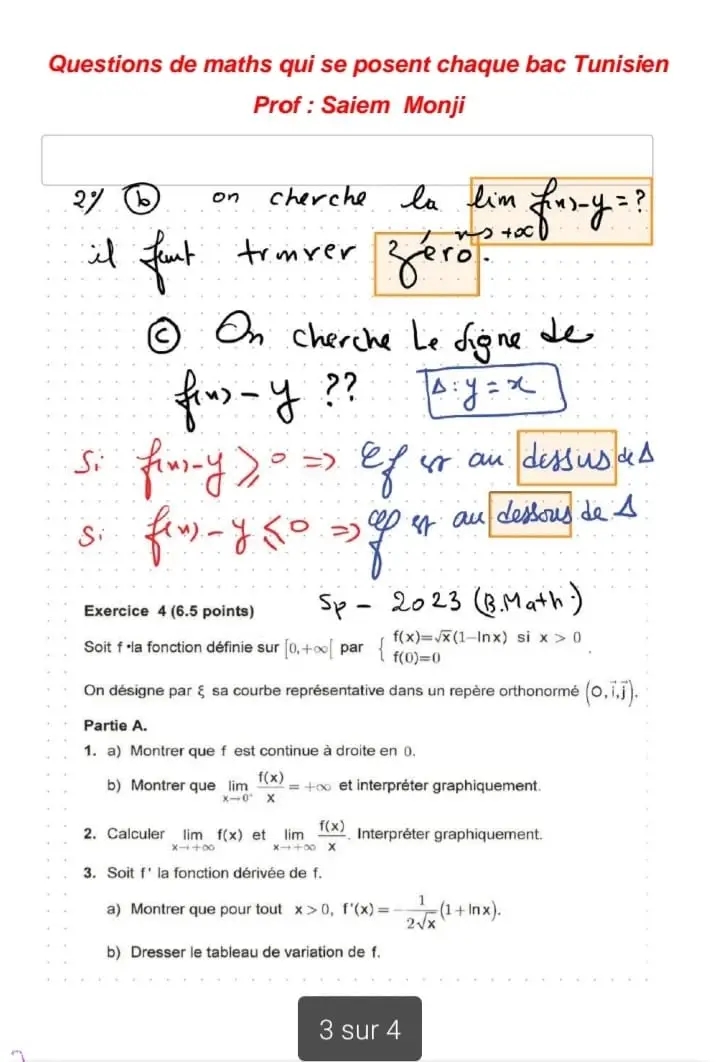 Questions de maths qui se posent chaque bac Tunisien
Prof : Saiem Monji
2°/ ⓑ on cherche la lim f(x)-y=?
x→+∞
il faut trouver zéro.
ⓒ On cherche le signe de
f(x)-y ?? Δ:y=x
Si f(x)-y ⩾ 0 => ζf est au dessus de Δ
Si f(x)-y ⩽ 0 => ζf est au dessous de Δ
Sp - 2023 (B.Math.)
Exercice 4 (6.5 points)
Soit f la fonction définie sur [0,+∞[ par { f(x)=√x(1-lnx) si x > 0
f(0)=0 .
On désigne par ξ sa courbe représentative dans un repère orthonormé (O,i⃗,j⃗).
Partie A.
1. a) Montrer que f est continue à droite en 0.
b) Montrer que lim x→0⁺ f(x)/x = +∞ et interpréter graphiquement.
2. Calculer lim x→+∞ f(x) et lim x→+∞ f(x)/x. Interpréter graphiquement.
3. Soit f' la fonction dérivée de f.
a) Montrer que pour tout x > 0, f'(x) = -1/(2√x) (1+lnx).
b) Dresser le tableau de variation de f.
3 sur 4